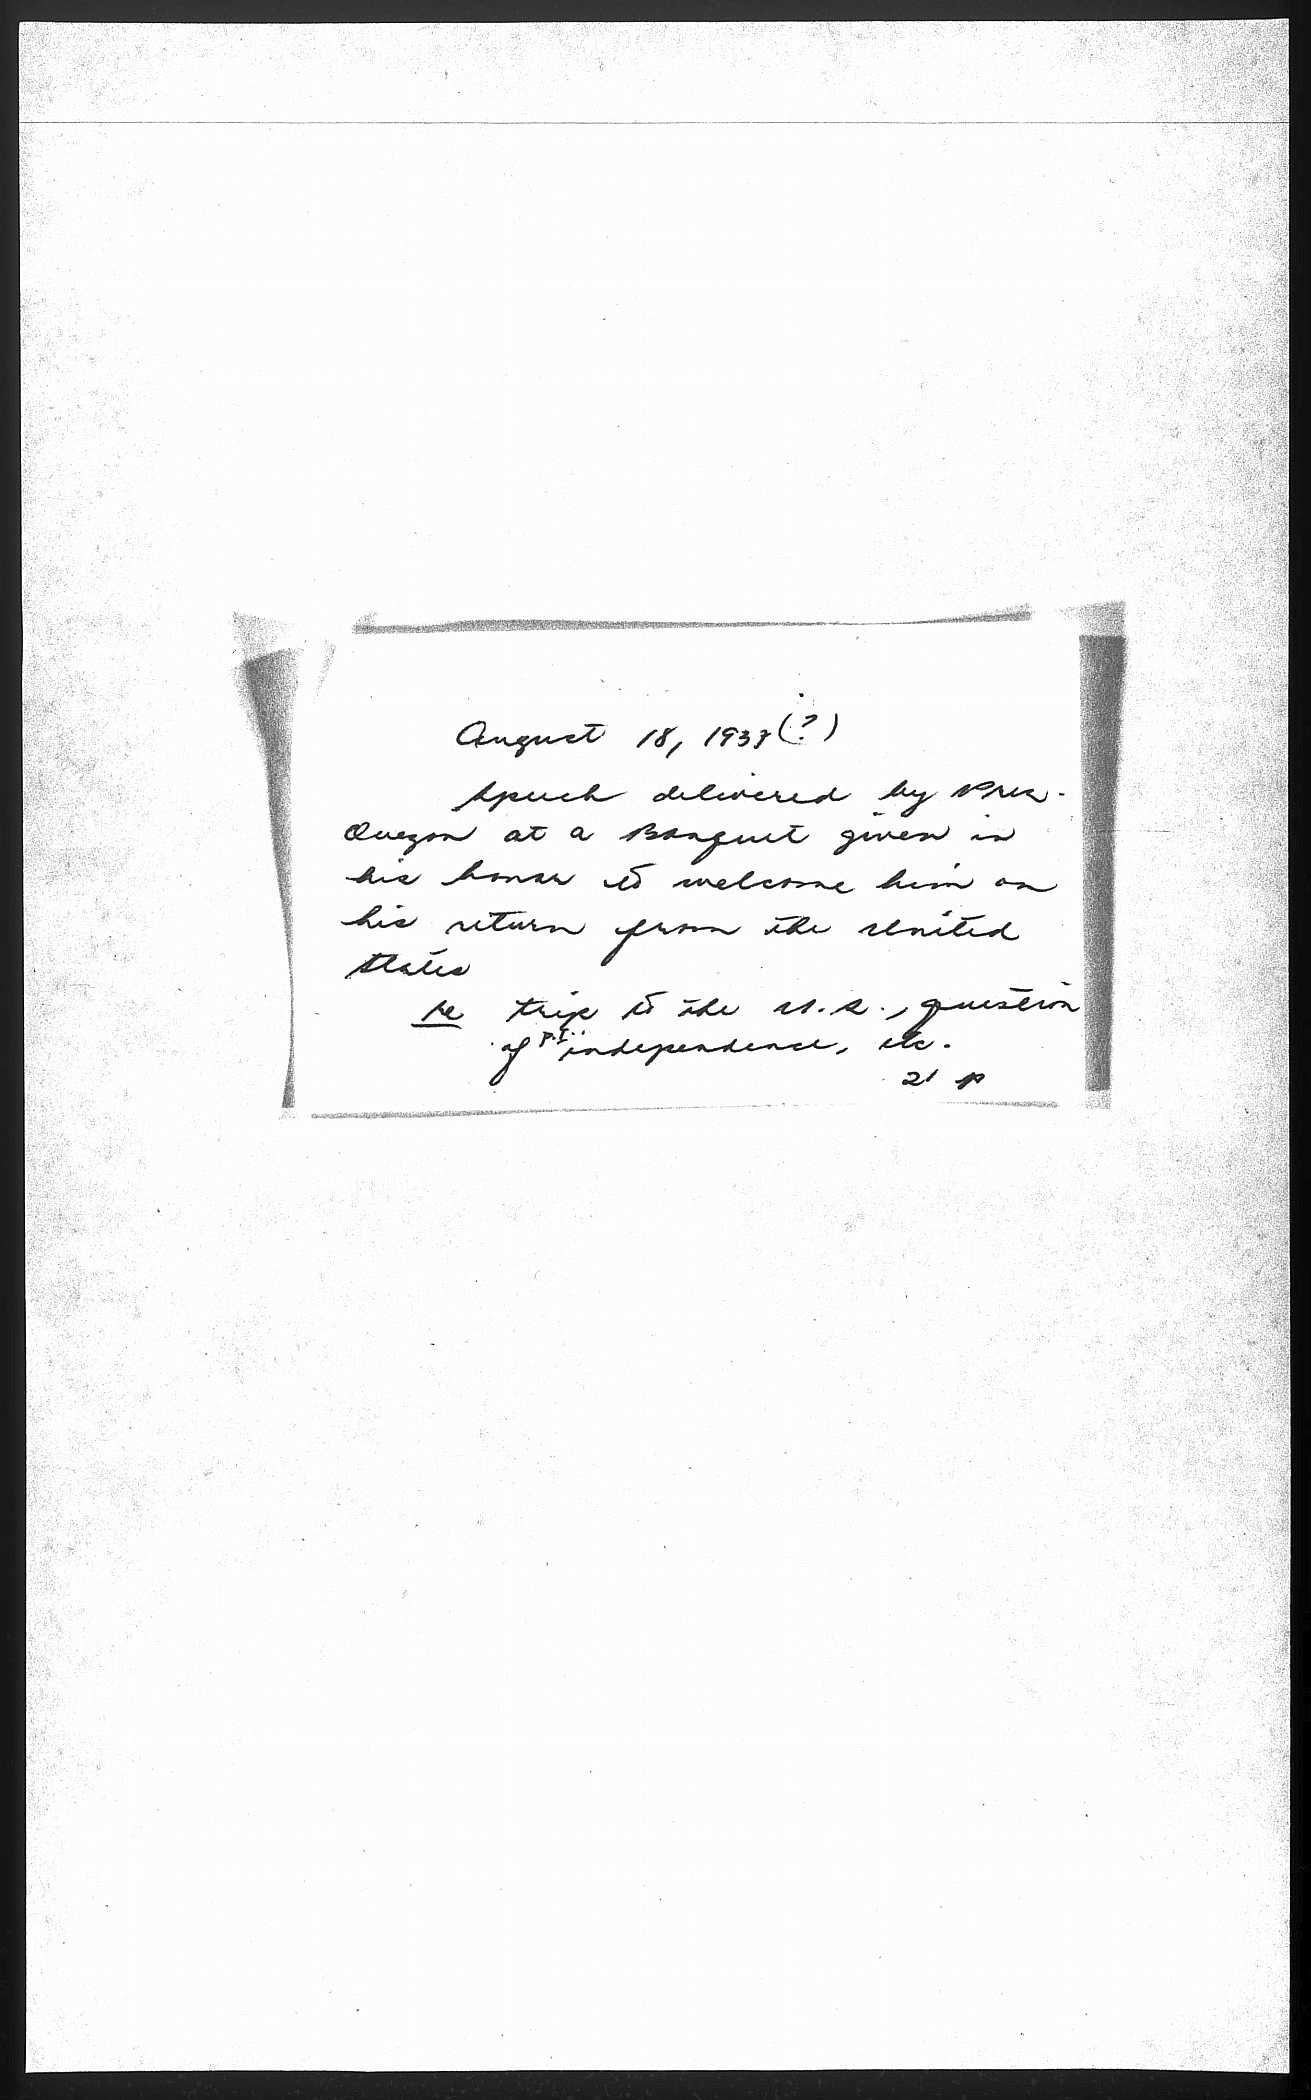 August 18, 1937 (?)
Speech delivered by Pres.
Quezon at a Banquet given in
his honor to welcome him on
his return from the United
States
re trip to the U.S., question
of P.I. independence, etc.
21 p